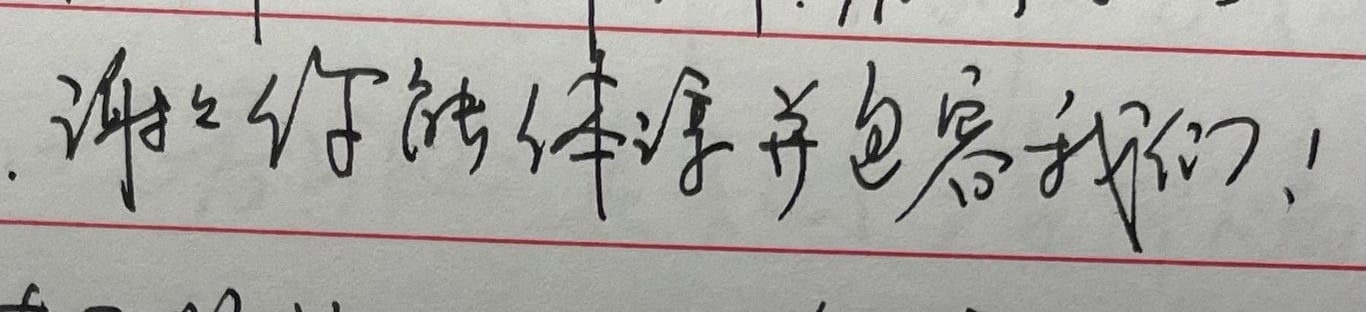 谢谢你能体谅并包容我们!